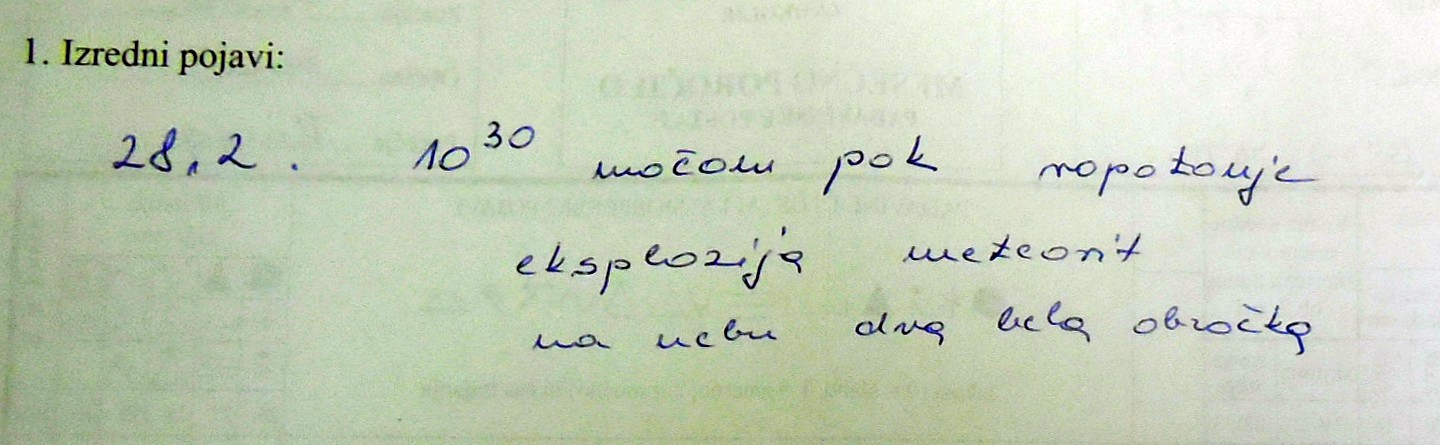 1. Izredni pojavi:
28.2. 10³⁰ močom pok ropotanje
eksplozija meteorit
na nebu dva bela obročka